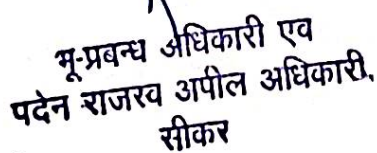 भू-प्रबन्ध अधिकारी एव
पदेन राजस्व अपील अधिकारी,
सीकर